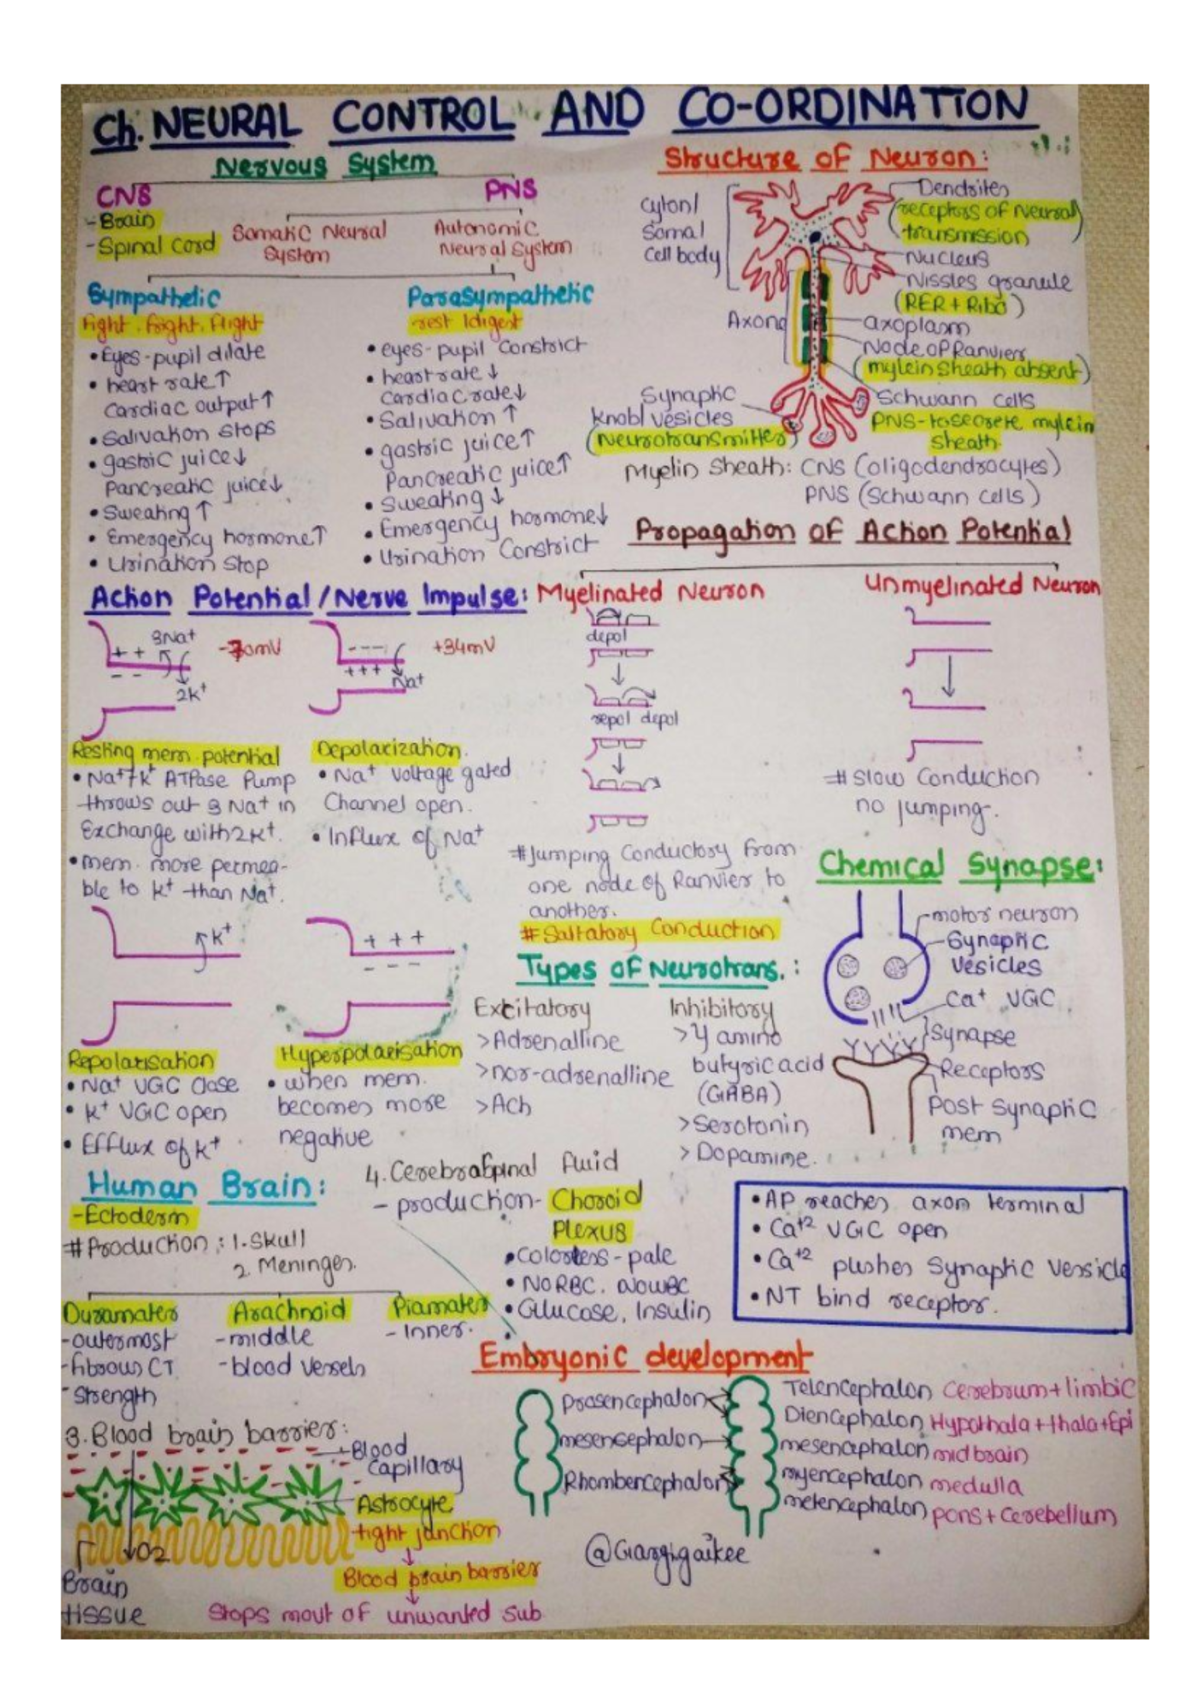 Ch. NEURAL CONTROL AND CO-ORDINATION
Nervous System
CNS
- Brain
- Spinal Cord
PNS
Somatic Neural
System
Autonomic
Neural System
Sympathetic
fight, fright, flight
• Eyes-pupil dilate
• heart rate↑
Cardiac output↑
• Salivation stops
• gastric juice↓
Pancreatic juice↓
• Sweating ↑
• Emergency hormone↑
• Urination stop
Parasympathetic
rest |digest
• eyes-pupil constrict
• heart rate ↓
Cardiac rate↓
• Salivation ↑
• gastric juice↑
Pancreatic juice↑
• Sweating ↓
• Emergency hormone↓
• Urination Constrict
Structure of Neuron:
Cyton/
Somal
Cell body
Dendrites
(receptors of Neural)
transmission
Nucleus
Nissles granule
(RER + Ribo)
Axon
axoplasm
Node of Ranvier
(mylein sheath absent)
Synaptic
knob| vesicles
(Neurotransmitter)
Schwann cells
PNS-to secrete mylein
sheath.
Myelin Sheath: CNS (oligodendrocytes)
PNS (Schwann cells)
Propagation of Action Potential
Myelinated Neuron
depol
repol depol
#Jumping Conductory from
one node of Ranvier to
another.
# Saltatory Conduction
Unmyelinated Neuron
# Slow Conduction
no jumping.
Action Potential / Nerve Impulse:
3Na+
+ +
- -
2K+
-70mV
- - -
+ + +
Na+
+34mV
Resting mem. potential
• Na+/K+ ATPase Pump
throws out 3 Na+ in
Exchange with 2K+.
• mem. more permea-
ble to K+ than Na+.
Depolarization.
• Na+ voltage gated
Channel open.
• Influx of Na+
K+
+ + +
- - -
Repolarisation
• Na+ VGC close
• K+ VGC open
• Efflux of K+
Hyperpolarisation
• when mem.
becomes more
negative
Types of Neurotrans. :
Excitatory
> Adrenalline
> nor-adrenalline
> Ach
Inhibitory
> Y amino
butyric acid
(GABA)
> Serotonin
> Dopamine.
Chemical Synapse:
motor neuron
Synaptic
Vesicles
Ca+ VGC
Synapse
Receptors
Post Synaptic
mem
• AP reaches axon terminal
• Ca+2 VGC open
• Ca+2 plushes Synaptic Vessicle
• NT bind receptor.
Human Brain:
- Ectoderm
# Production : 1. Skull
2. Meninges.
Duramater
- outermost
- fibrous CT
- Strength
Arachnoid
- middle
- blood vessels
Piamater
- Inner.
3. Blood brain barrier:
Blood
Capillary
Astrocyte
tight janction
Blood brain barrier
Stops mout of unwanted sub
O2
Brain
tissue
4. Cerebrospinal fluid
- production- Choroid
Plexus
• Colorless - pale
• NO RBC, NO WBC
• Glucose, Insulin
Embryonic development
Prosencephalon
mesencephalon
Rhombencephalon
Telencephalon Cerebrum + limbic
Diencephalon Hypothala + thala + Epi
mesencephalon mid brain
myencephalon medulla
metencephalon pons + Cerebellum
@Gargigaikee